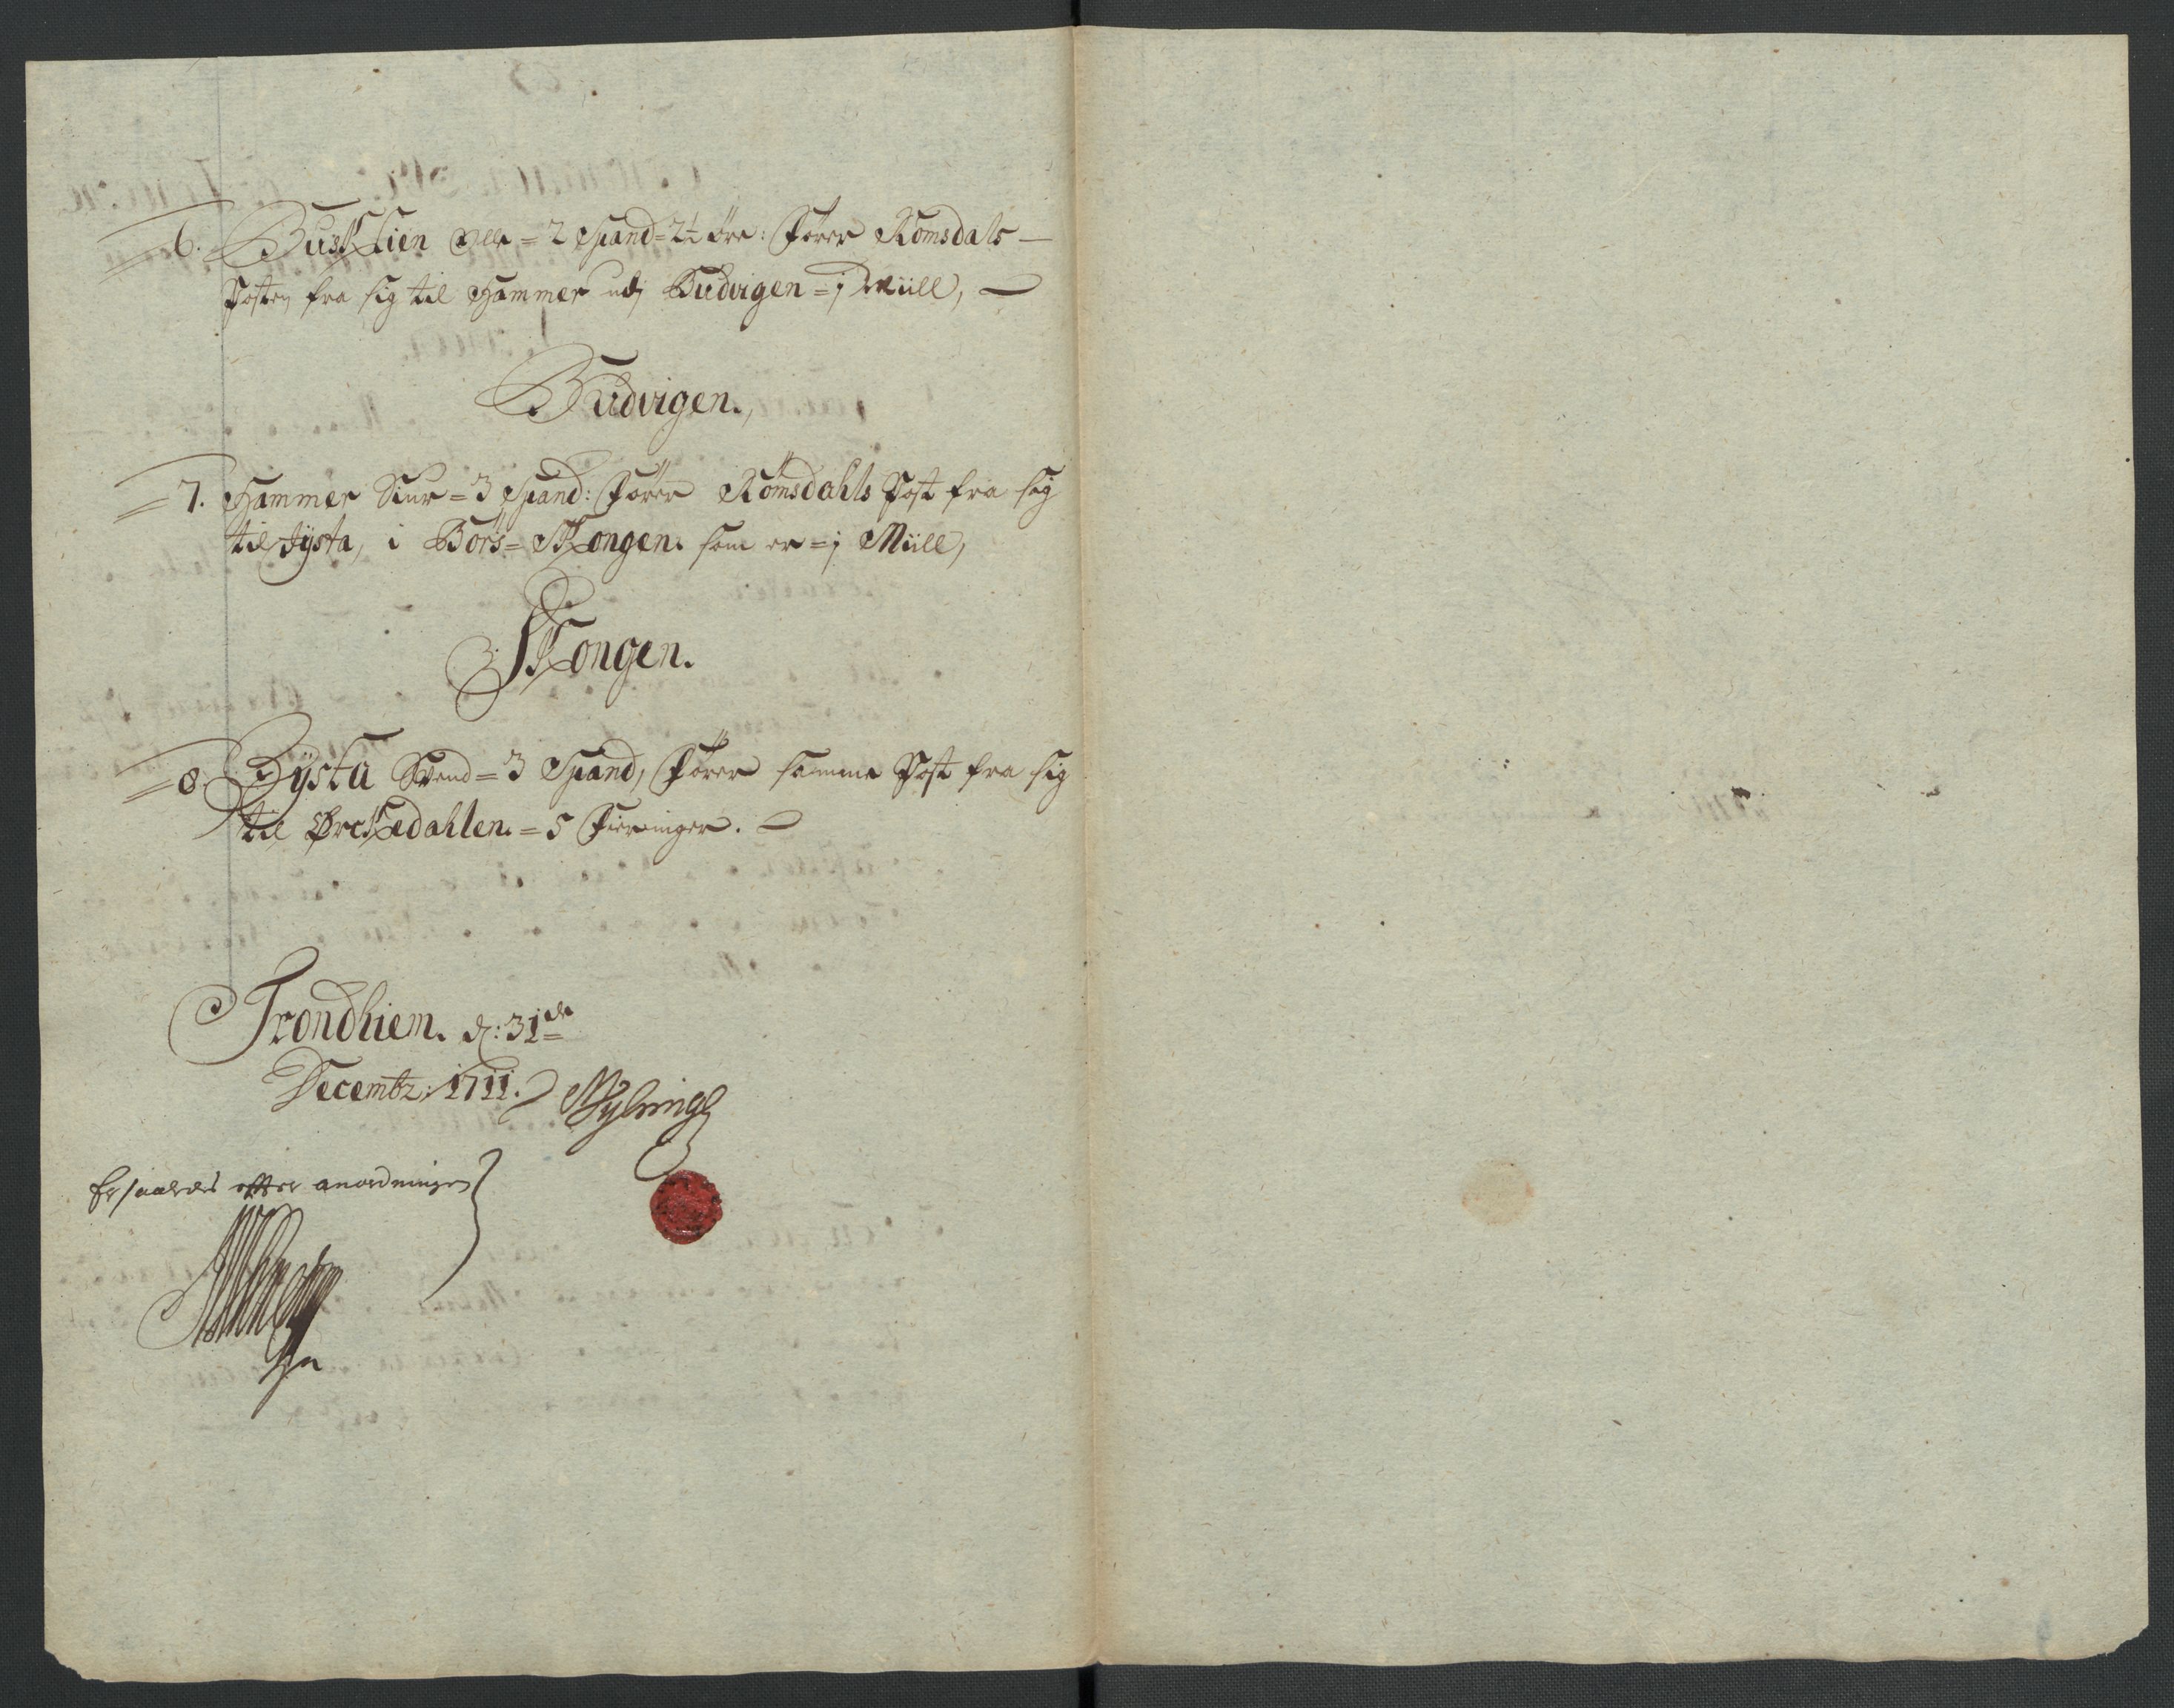 6. Buskliен Olle = 2 Spand = 2½ øre: Fører Romsdals —
Posten fra sig til Hammer udj Budvigen = j Miill, —
Budvigen.,
7. Hammer Siur = 3 Spand: Fører Römsdahls Post fra sig
til Dysta, i Börs= Skongen. som er = j Miill,
Skongen.
8. Dÿsta Svend = 3 Spand, Förer samme Post fra sig
til Ørckedahlen. = 5 Fieringer. —
Trondhiem. d: 31de
Decembr: 1711.
Er saaledes efter anordningen